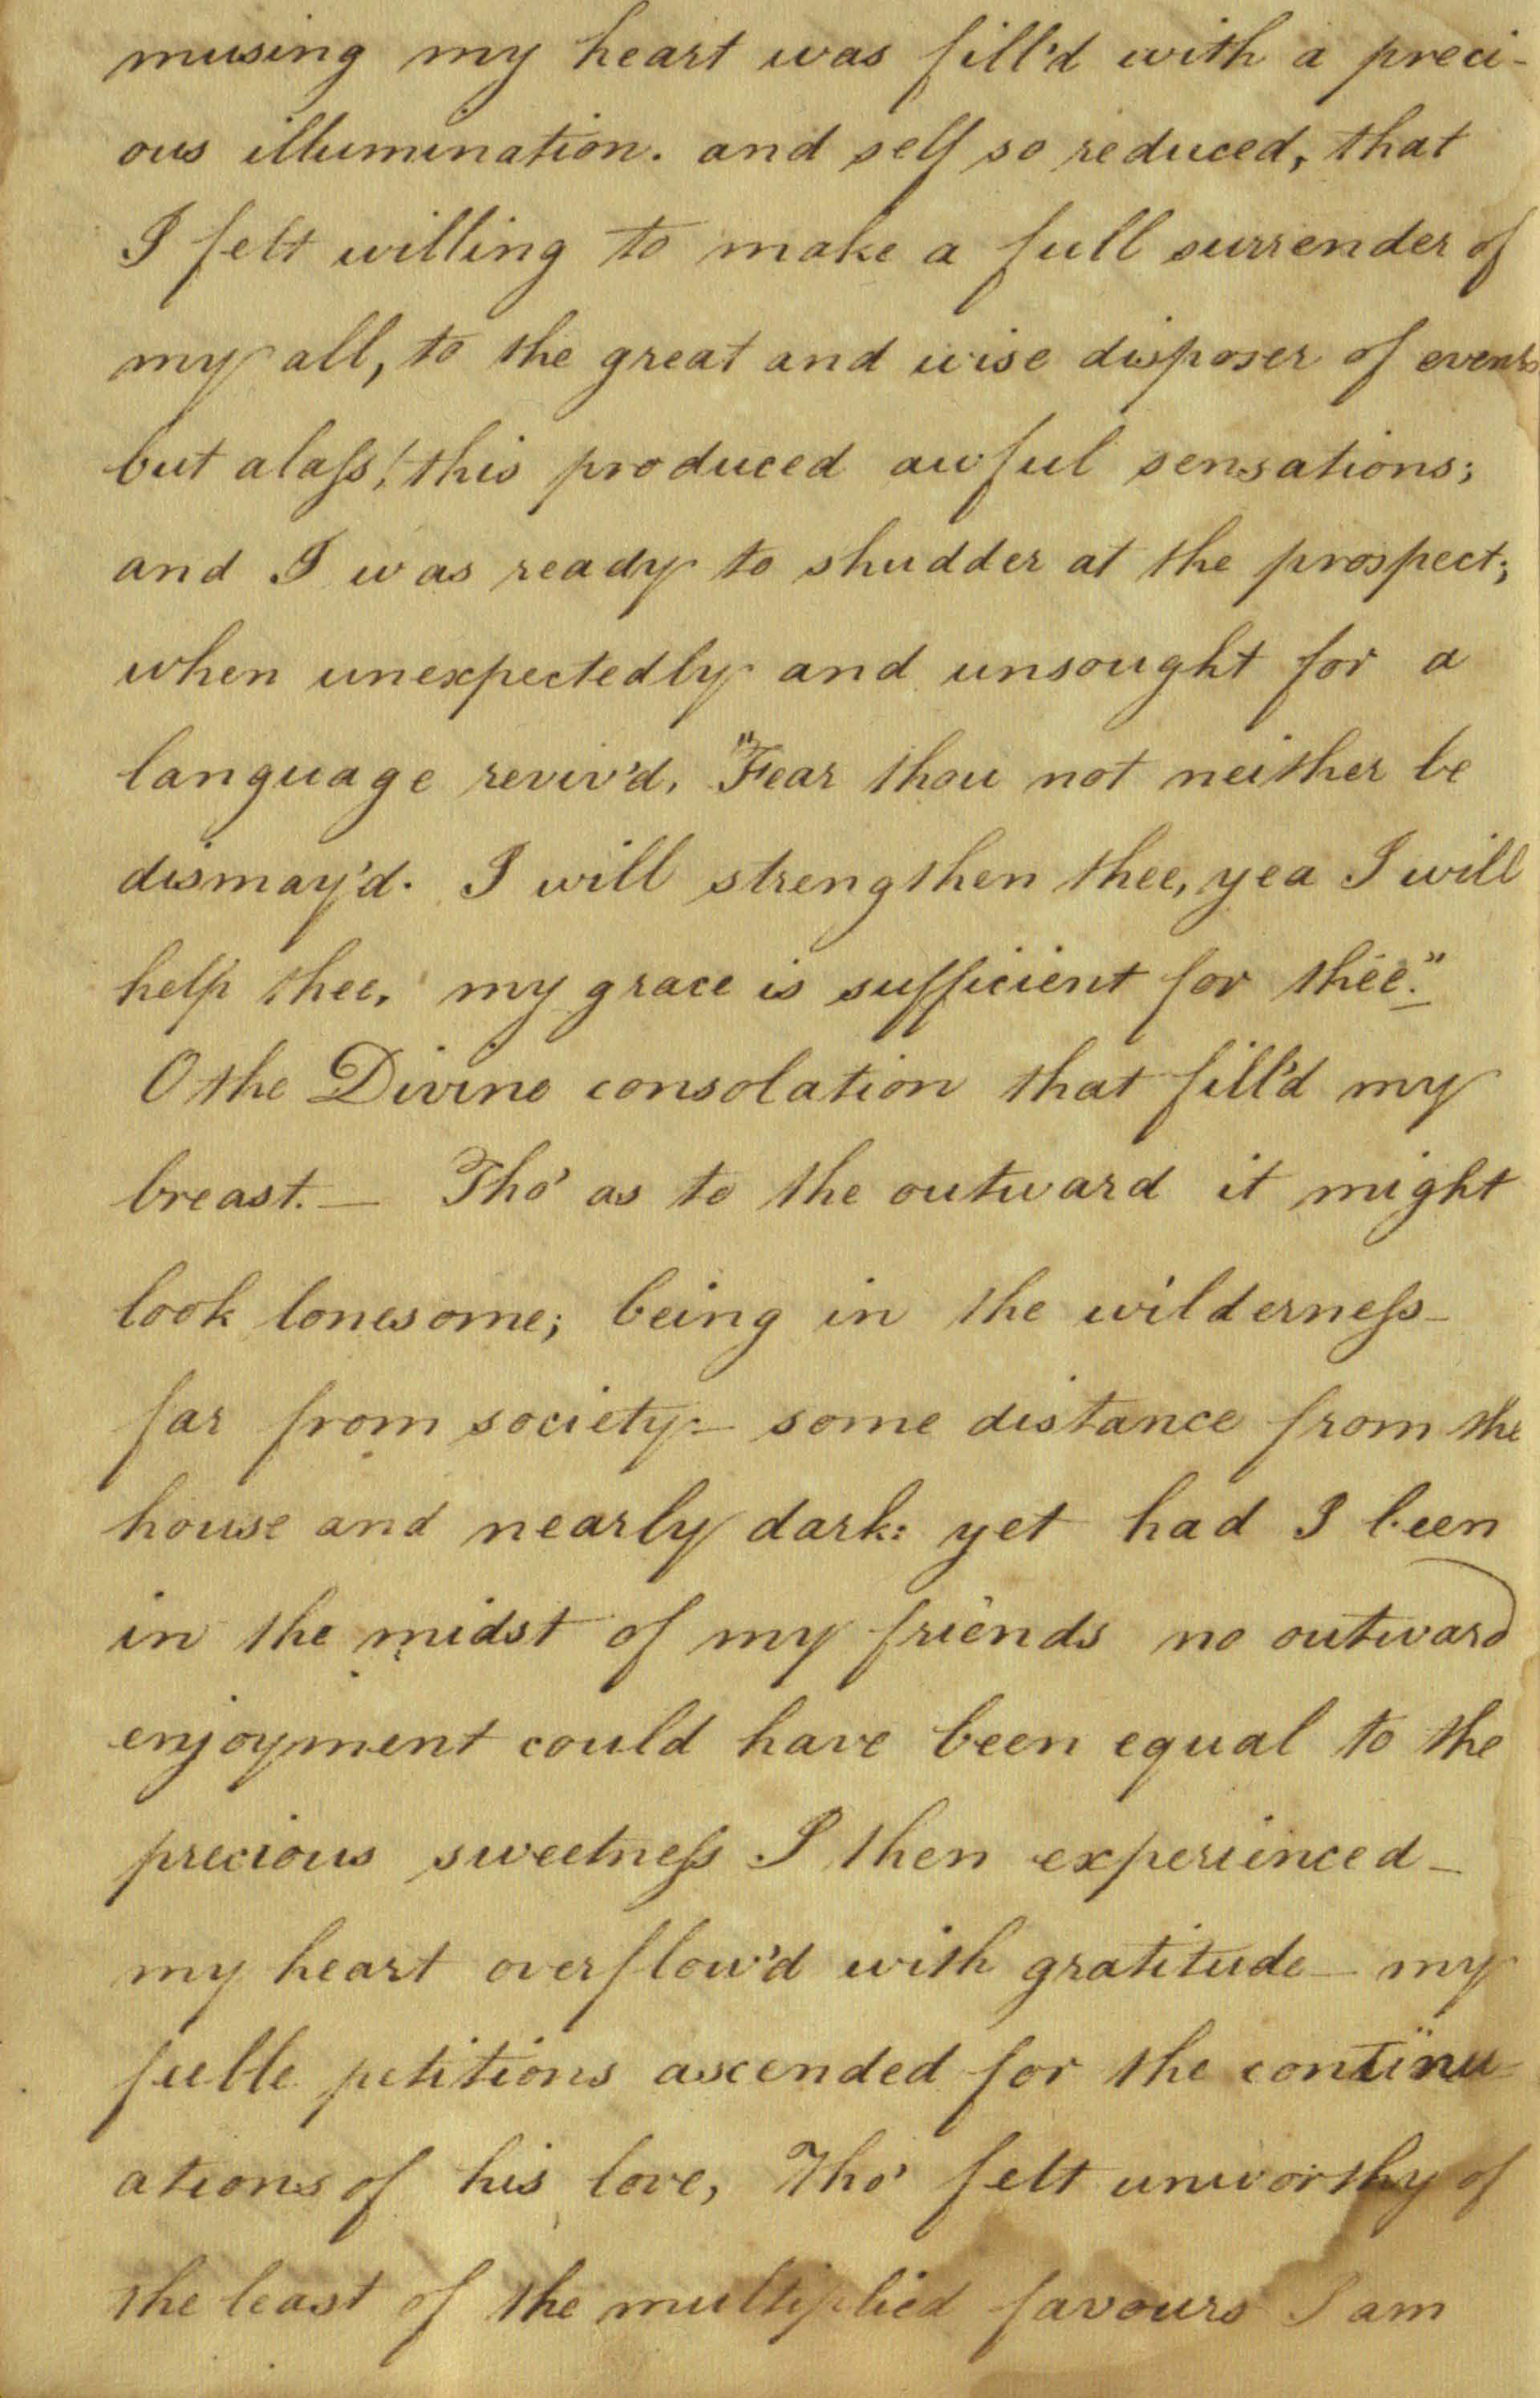 musing my heart was fill'd with a preci-
ous illumination. and self so reduced, that
I felt willing to make a full surrender of
my all, to the great and wise disposer of events
but alaſs! this produced awful sensations;
and I was ready to shudder at the prospect;
when unexpectedly and unsought for a
language reviv'd, "Fear thou not neither be
dismay'd. I will strengthen thee, yea I will
help thee, my grace is sufficient for thee."
O the Divine consolation that fill'd my
breast.— Tho' as to the outward it might
look lonesome; being in the wilderneſs—
far from society:— some distance from the
house and nearly dark: yet had I been
in the midst of my friends no outward
enjoyment could have been equal to the
precious sweetneſs I then experienced—
my heart overflow'd with gratitude— my
feeble petitions ascended for the continu-
ations of his love, Tho' felt unworthy of
the least of the multiplied favours I am